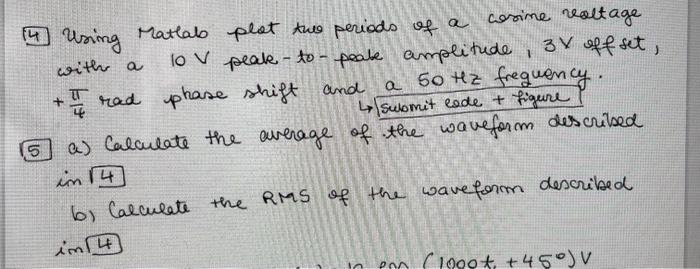 4 Using Matlab plot two periods of a cosine voltage
with a 10 V peak-to-peak amplitude, 3V offset,
+ π/4 rad phase shift and a 50 Hz frequency.
↳ submit code + figure
5 a) Calculate the average of the waveform described
in 4
b) Calculate the RMS of the waveform described
in 4
(1000t + 45°) V